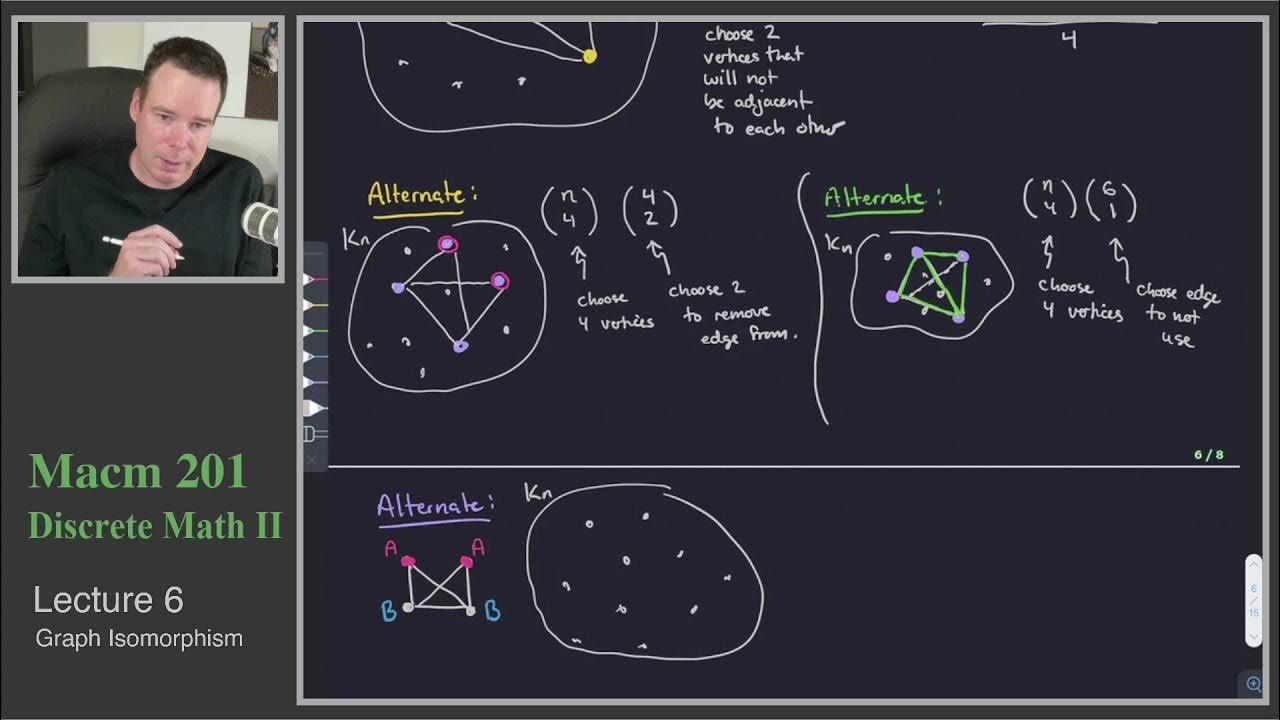 choose 2
vertices that
will not
be adjacent
to each other
4
Alternate:
(n 4) (4 2)
Kn
choose
4 vertices
choose 2
to remove
edge from.
Alternate:
(n 4) (6 1)
Kn
choose
4 vertices
choose edge
to not
use
6 / 8
Alternate:
A A
B B
Kn
6
/
15
Macm 201
Discrete Math II
Lecture 6
Graph Isomorphism